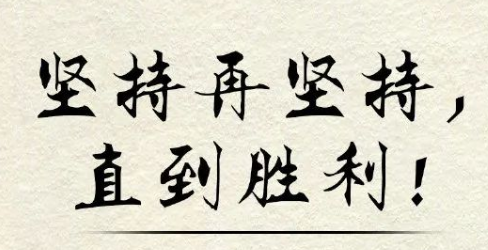 坚持再坚持，
直到胜利！